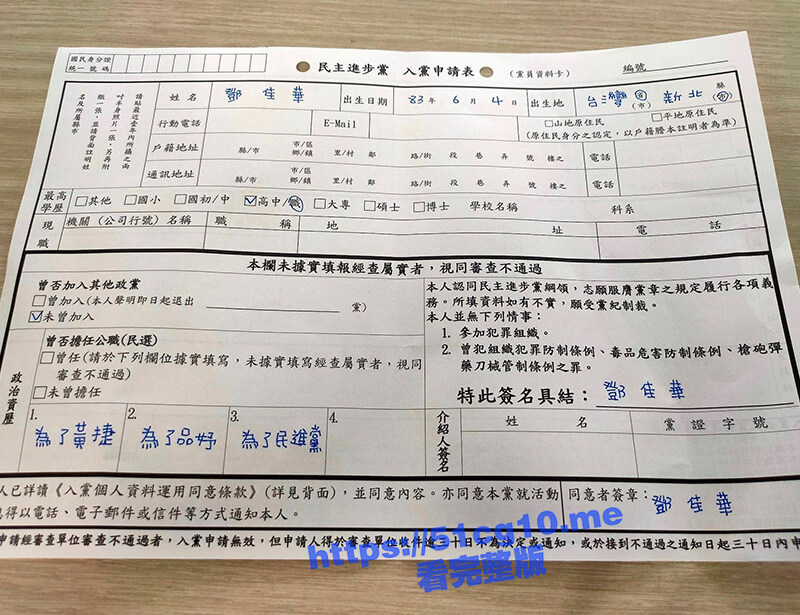 國民身分證
統一號碼
民主進步黨 入黨申請表
(黨員資料卡)
編號
請貼最近壹年內所攝之兩
吋半身照片一張,另再附
繳一張,並請背面註明姓
名及所屬縣市
姓名 鄧佳華 出生日期 83年 6月 4日 出生地 台灣省(市) 新北 縣(市)
行動電話 E-Mail □山地原住民 □平地原住民
(原住民身分之認定,以戶籍謄本註明者為準)
戶籍地址 縣/市 市/區 鄉/鎮 里/村 鄰 路/街 段 巷 弄 號 樓之 電話
通訊地址 縣/市 市/區 鄉/鎮 里/村 鄰 路/街 段 巷 弄 號 樓之 電話
最高學歷 □其他 □國小 □國初/中 ☑高中/職 □大專 □碩士 □博士 學校名稱 科系
現職 機關(公司行號)名稱 職稱 地址 電話
本欄未據實填報經查屬實者,視同審查不通過
曾否加入其他政黨
□曾加入(本人聲明即日起退出 黨)
☑未曾加入
政治資歷
曾否擔任公職(民選)
□曾任(請於下列欄位據實填寫,未據實填寫經查屬實者,視同
審查不通過)
□未曾擔任
1. 為了黃捷
2. 為了品妤
3. 為了民進黨
4.
本人認同民主進步黨綱領,志願服膺黨章之規定履行各項義
務。所填資料如有不實,願受黨紀制裁。
本人並無下列情事:
1. 參加犯罪組織。
2. 曾犯組織犯罪防制條例、毒品危害防制條例、槍砲彈
藥刀械管制條例之罪。
特此簽名具結: 鄧佳華
介紹人簽名 姓名 黨證字號
人已詳讀《入黨個人資料運用同意條款》(詳見背面),並同意內容。亦同意本黨就活動
得以電話、電子郵件或信件等方式通知本人。
同意者簽章: 鄧佳華
申請經審查單位審查不通過者,入黨申請無效,但申請人得於審查單位收件逾三十日不為決定或通知,或於接到不通過之通知日起三十日內申
https://51cg10.me
看完整版